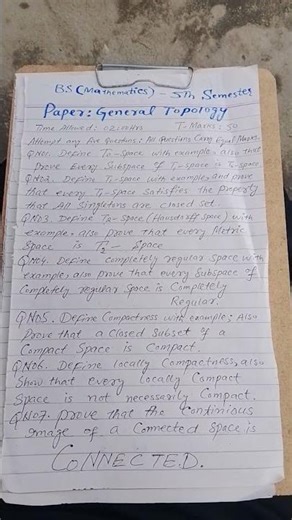 BS (Mathematics) - 5th Semester
Paper: General Topology
Time Allowed: 02:00Hrs T. Marks: 50
Attempt any five Questions: All Questions Carry Equal Marks.
QNo1. Define T₀-Space with example, also that
Prove Every Subspace of T₀-Space is T₀-Space
QNo2. Define T₁-Space with example and prove
that every T₁-Space Satisfies the property
that All Singletons are closed set.
QNo3 Define T₂-Space (Hausdorff space) with
example, also prove that every Metric
Space is T₂ - Space
QNo4. Define completely regular Space with
example, also prove that every Subspace of
Completely regular Space is Completely
Regular.
QNo5. Define Compactness with example; Also
Prove that a closed Subset of a
Compact Space is Compact.
QNo6. Define locally Compactness, also
Show that every locally Compact
Space is not necesserily Compact.
QNo7. Prove that the Continious
image of a Connected Space is
CONNECTED.